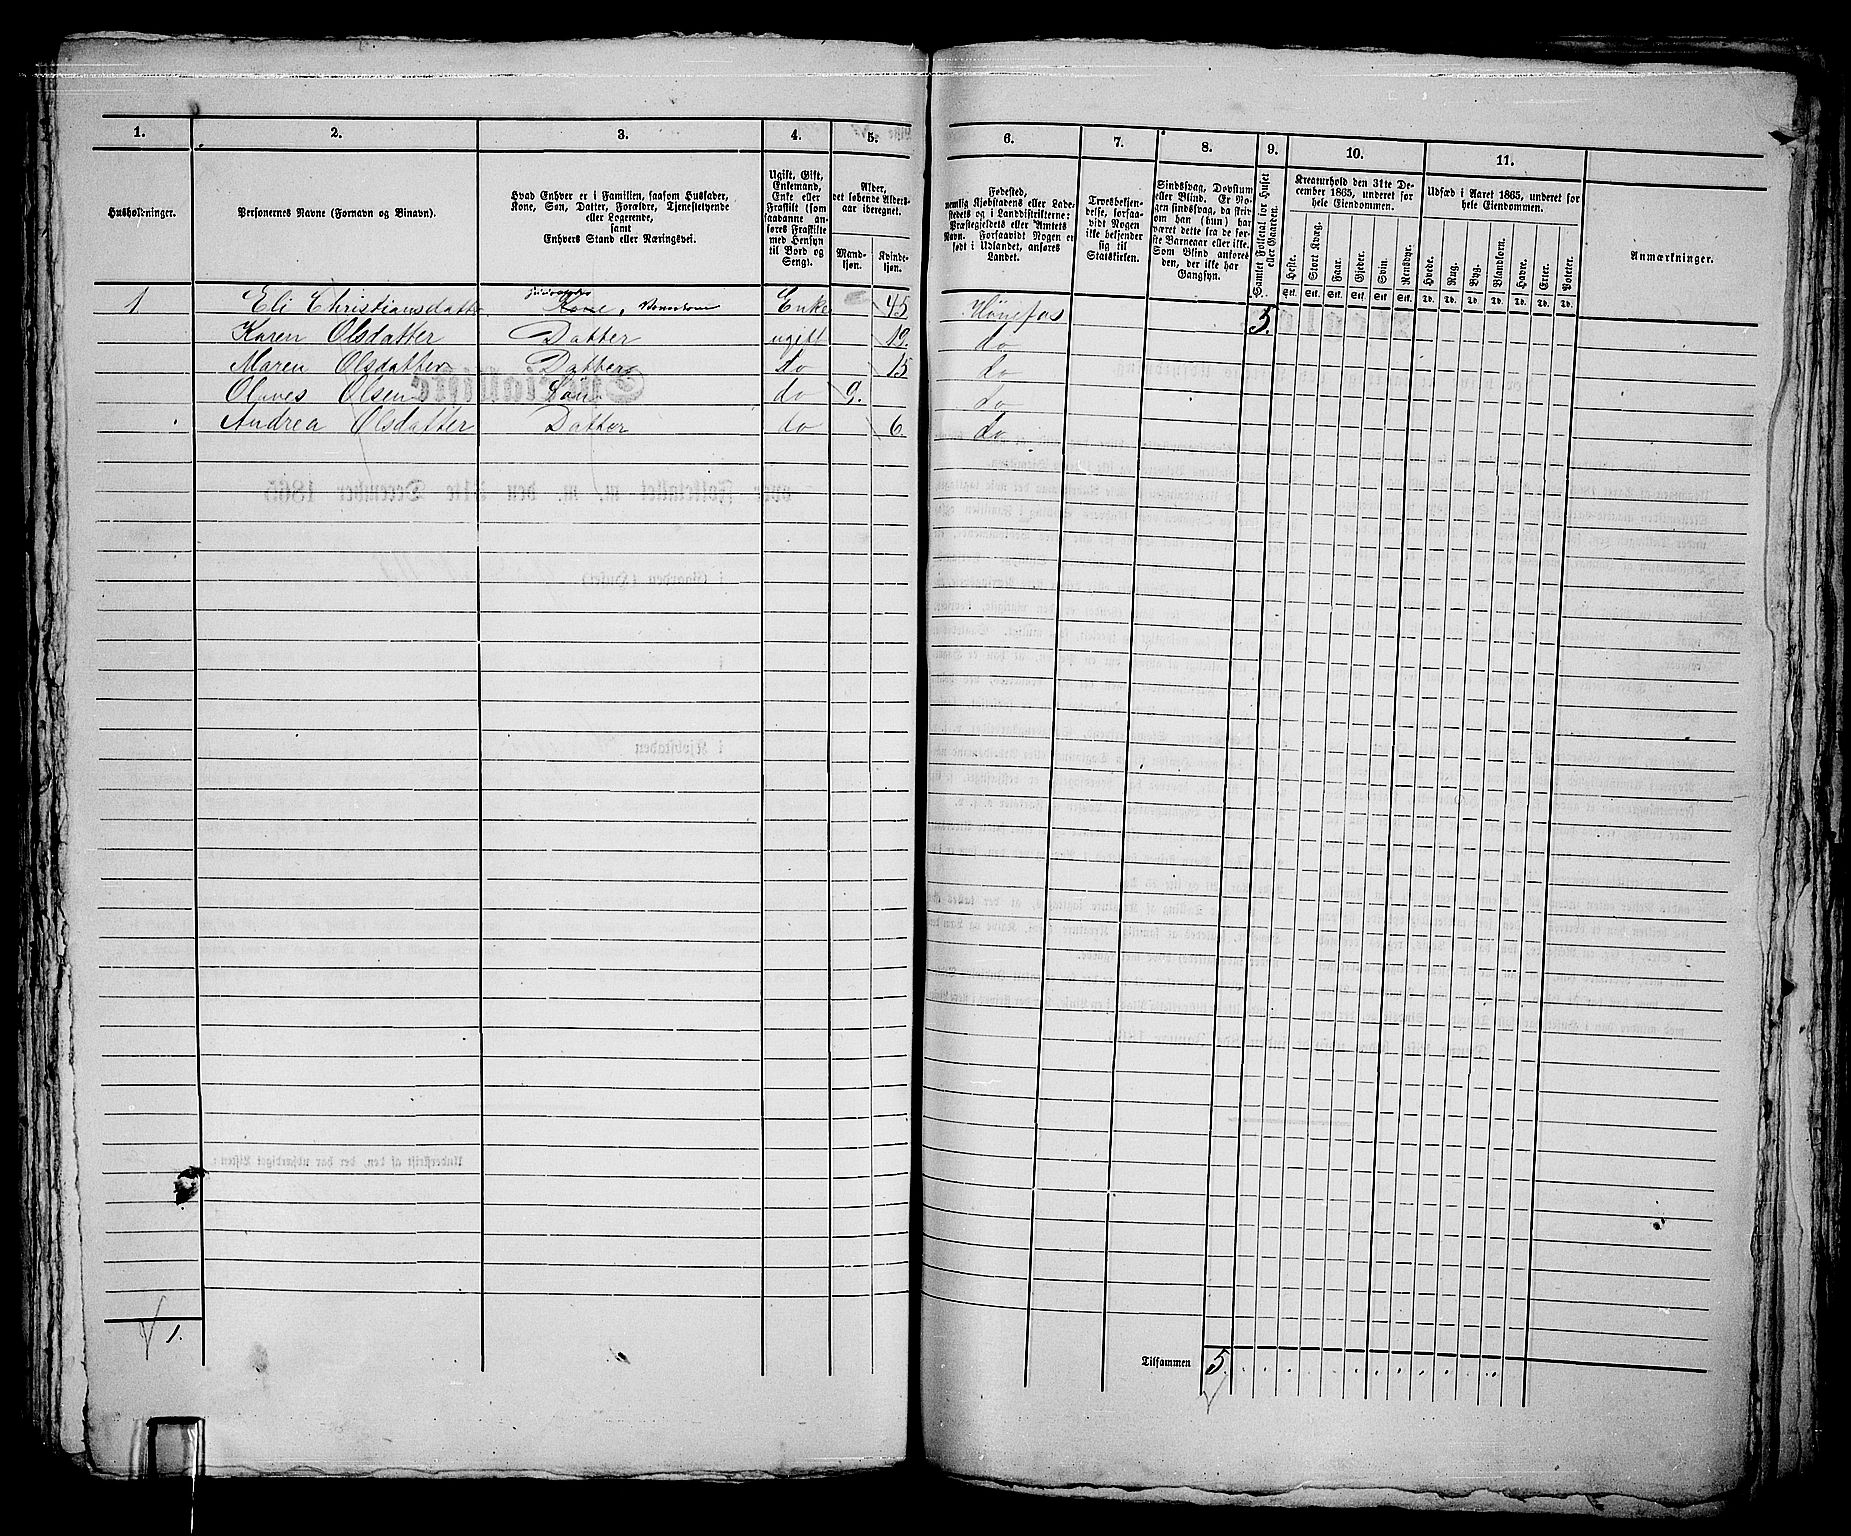 1. 2. 3. 4. 5. 6. 7. 8. 9. 10. 11.
Husholdninger.
Personernes Navne (Fornavn og Binavn).
Hvad Enhver er i Familien, saasom Husfader,
Kone, Søn, Datter, Forældre, Tjenestetyende
eller Logerende,
samt
Enhvers Stand eller Næringsvei.
Ugift, Gift,
Enkemand,
Enke eller
Fraskilt (som
saadanne an-
føres Fraskilte
med Hensyn
til Bord og
Seng).
Alder,
det løbende Alders-
aar iberegnet.
Mand-
kjøn.
Kvinde-
kjøn.
Fødested,
nemlig Kjøbstadens eller Lade-
stedets og i Landdistrikterne:
Præstegjeldets eller Amtets
Navn. Forsaavidt Nogen er
født i Udlandet, anføres
Landet.
Troesbekjen-
delse, forsaa-
vidt Nogen
ikke bekjender
sig til
Statskirken.
Sindssvag, Døvstum
eller Blind. Er No-
gen sindssvag, da skriv
om han (hun) har
været dette fra de før-
ste Barneaar eller ikke.
Som Blind anføres
den, der ikke har
Gangsyn.
Samlet Folketal for Huset
eller Gaarden.
Kreaturhold den 31te De-
cember 1865, underet for
hele Eiendommen.
Heste. Stort Kvæg. Faar. Gjeder. Svin. Rensdyr.
Stk. Stk. Stk. Stk. Stk. Stk.
Udsæd i Aaret 1865, underet for
hele Eiendommen.
Hvede. Rug. Byg. Blandkorn. Havre. Erter. Poteter.
Td. Td. Td. Td. Td. Td. Td.
Anmærkninger.
1 Eli Christiansdatter Kone, Enke 45 Hønefos 5.
Karen Olsdatter Datter ugift 19. do
Maren Olsdatter Datter do 15 do
Olaves Olsen Søn do 9. do
Andrea Olsdatter Datter do 6. do
1.
Tilsammen 5.